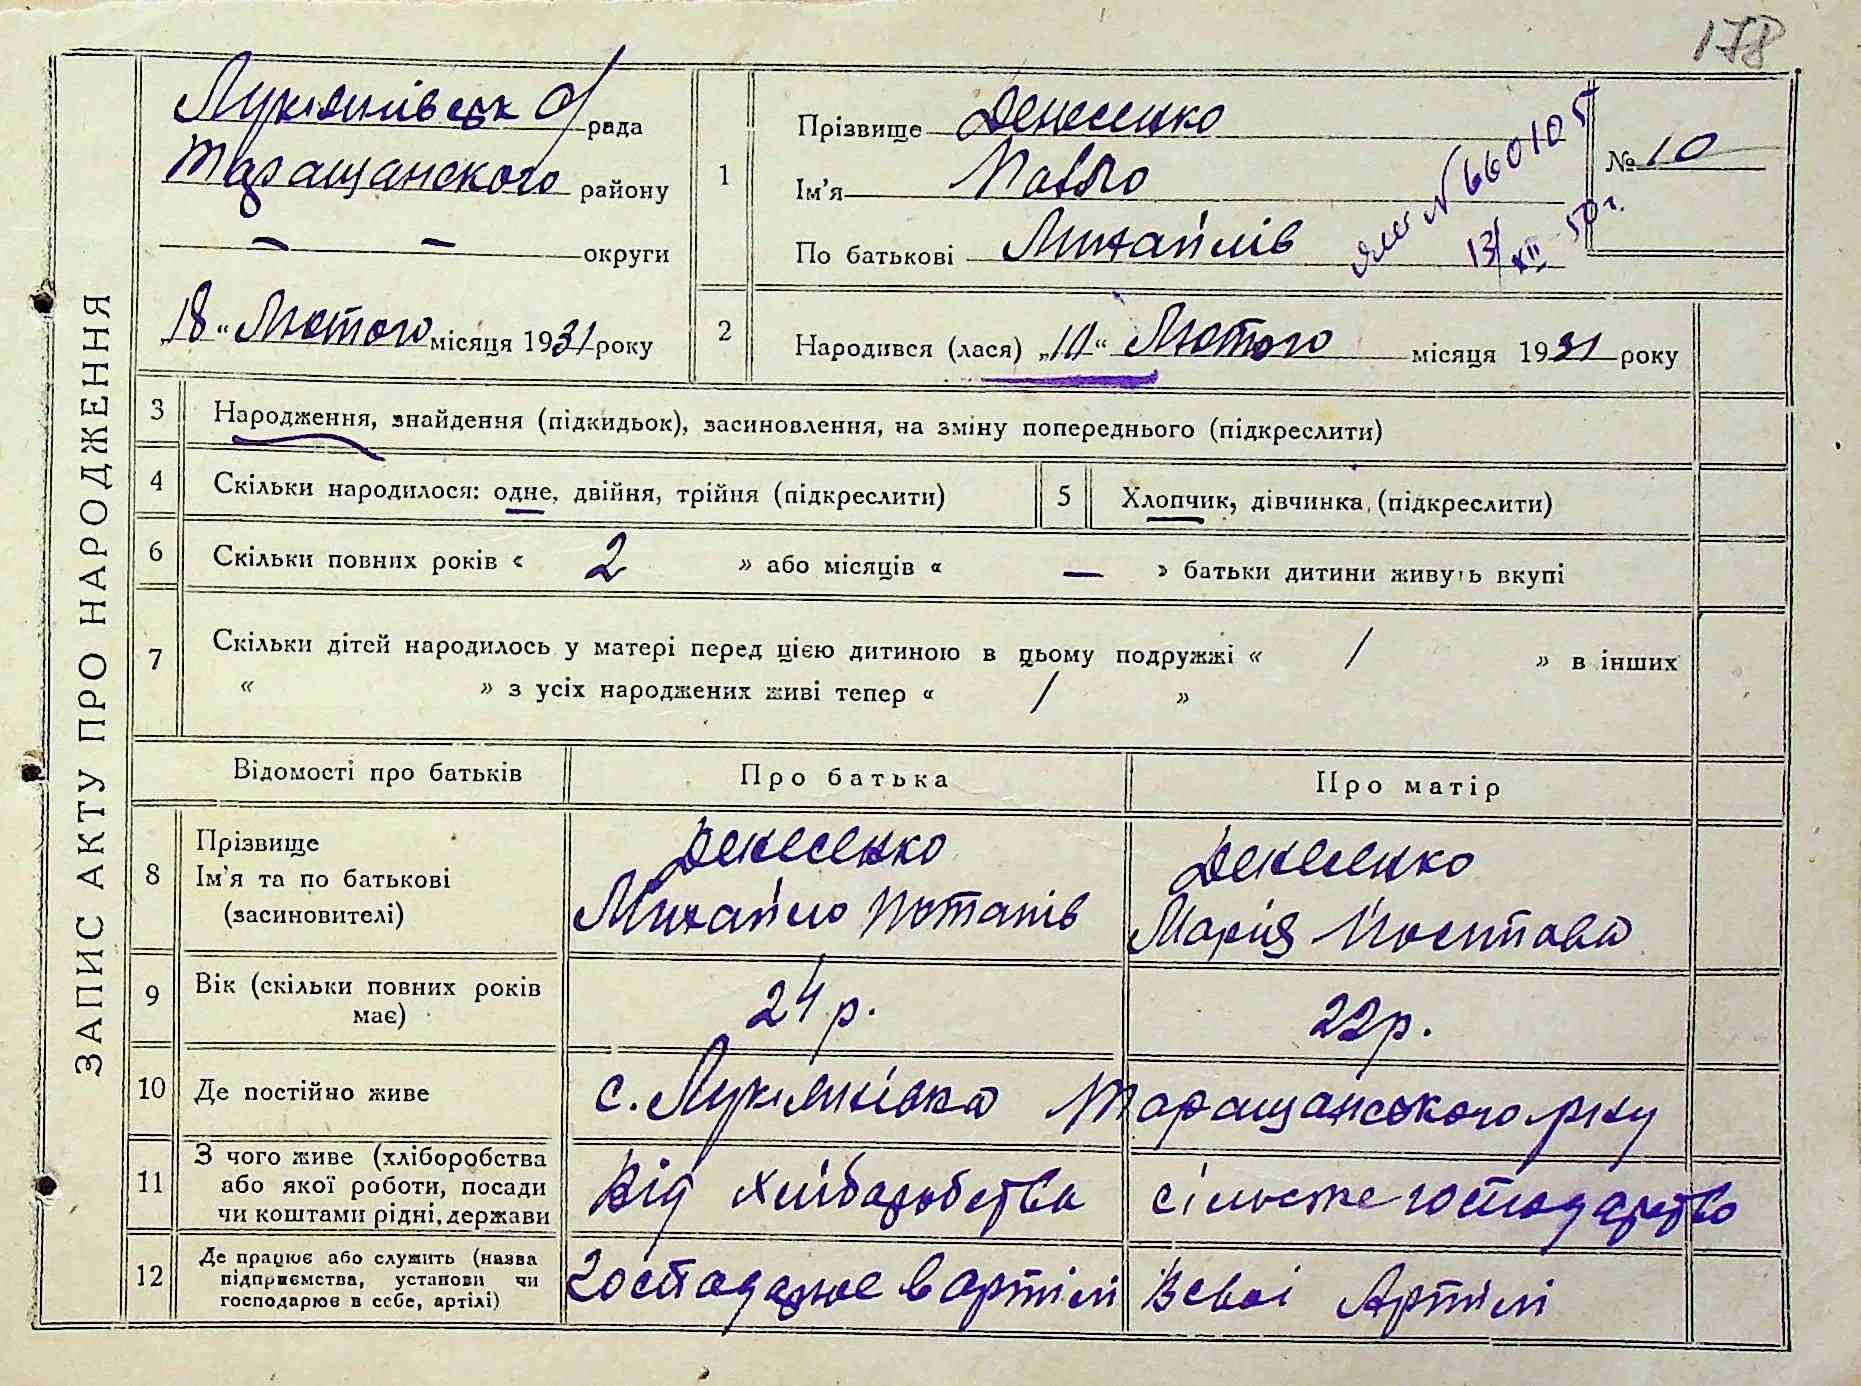 178
ЗАПИС АКТУ ПРО НАРОДЖЕННЯ
Лукянівськ с/рада
Таращанского району
— — округи
„18“ Лютого місяця 1931 року
1
Прізвище Денесенко
Ім'я Павло
По батькові Михайлів
№ 660105
13/XII 50 г.
№ 10
2
Народився (лася) „10“ Лютого місяця 1931 року
3 Народження, знайдення (підкидьок), засиновлення, на зміну попереднього (підкреслити)
4 Скільки народилося: одне, двійня, трійня (підкреслити)
5 Хлопчик, дівчинка, (підкреслити)
6 Скільки повних років « 2 » або місяців « — » батьки дитини живуть вкупі
7 Скільки дітей народилось у матері перед цією дитиною в цьому подружжі « / » в інших
« » з усіх народжених живі тепер « / »
Відомості про батьків Про батька Про матір
8
Прізвище
Ім'я та по батькові
(засиновителі)
Денесенко
Михайло Потапів
Денесенко
Марія
9
Вік (скільки повних років
має)
24 р.
22 р.
10 Де постійно живе
с. Лукянівка Таращанського р-ну
11
З чого живе (хліборобства
або якої роботи, посади
чи коштами рідні, держави
Від хліборобства
сільське господарство
12
Де працює або служить (назва
підприємства, установи чи
господарює в себе, артілі)
Господарює в артілі
В свої Артілі